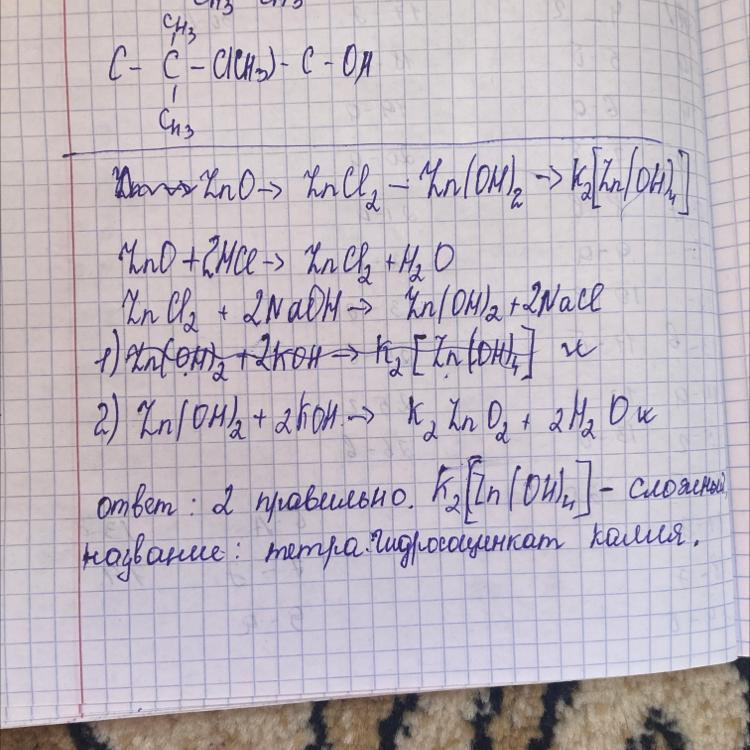 CH3 CH3
CH3
C - C - C(CH3) - C - OH
CH3
ZnO → ZnCl2 - Zn(OH)2 → K2[Zn(OH)4]
ZnO + 2HCl → ZnCl2 + H2O
ZnCl2 + 2NaOH → Zn(OH)2 + 2NaCl
1) Zn(OH)2 + 2KOH → K2[Zn(OH)4] ж
2) Zn(OH)2 + 2KOH → K2ZnO2 + 2H2O к
ответ: 2 правильно. K2[Zn(OH)4] - сложный
название: тетрагидросоцинкат калия.